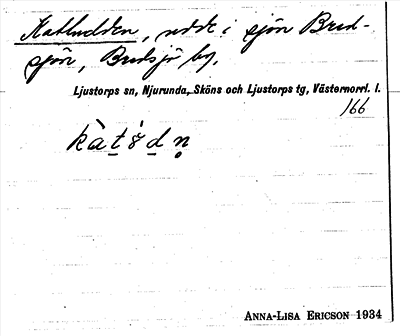 Katudden, udde i sjön Bred-
sjön, Bredsjö by.
Ljustorps sn, Njurunda, Sköns och Ljustorps tg, Västernorrl. l.
166
Anna-Lisa Ericson 1934